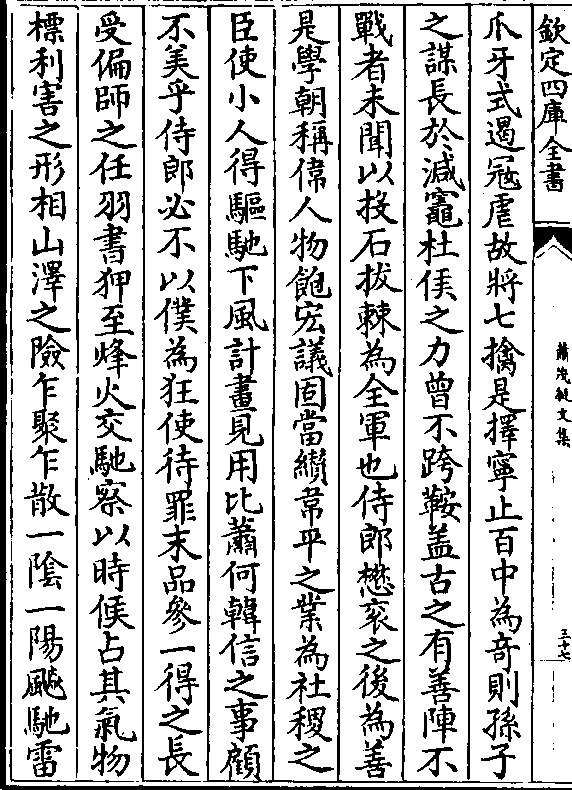 欽定四庫全書
蕭茂挺文集
三十七
爪牙式遏冦虐故將七擒是擇寧止百中為竒則孫子
之謀長於減竈杜侯之力曽不跨鞍盖古之有善陣不
戰者未聞以投石拔棘為全軍也侍郎懋衮之後為善
是學朝稱偉人物飽宏議固當纘韋平之業為社稷之
臣使小人得驅馳下風計畫見用比蕭何韓信之事顧
不美乎侍郎必不以僕為狂使待罪末品參一得之長
受偏師之任羽書狎至烽火交馳察以時候占其氣物
標利害之形相山澤之險乍聚乍散一隂一陽飈馳雷